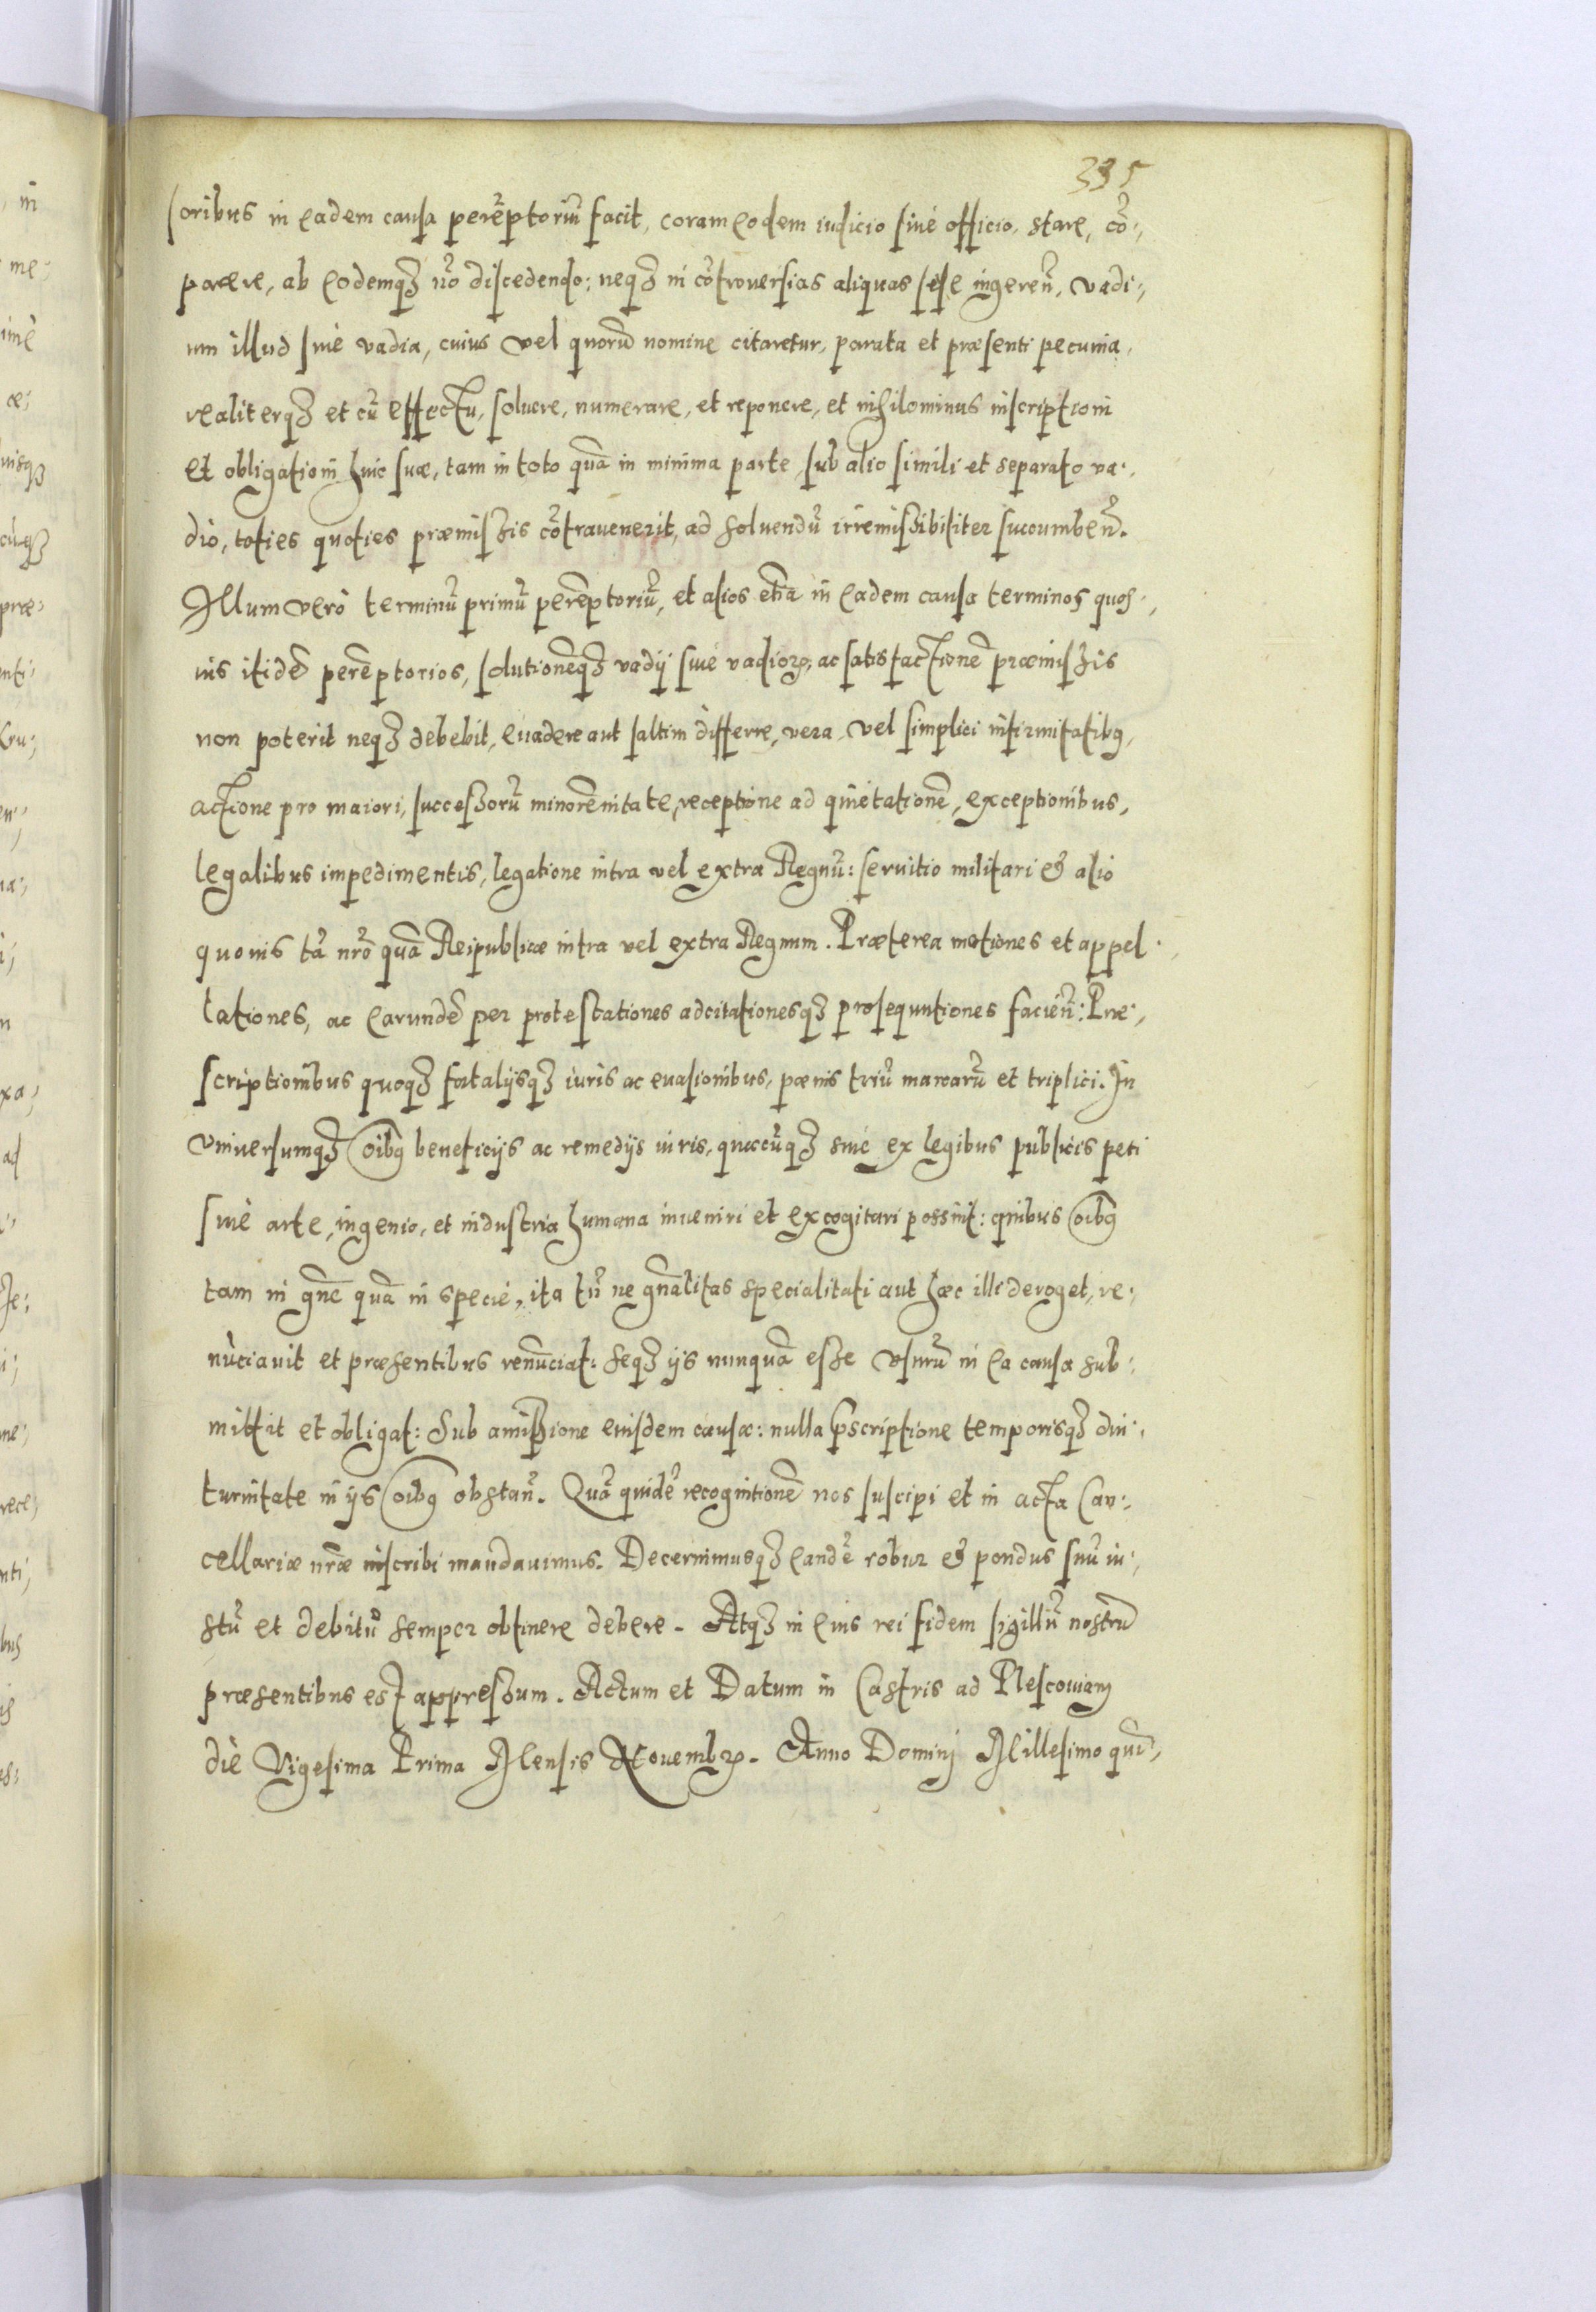 335
soribus in eadem causa perēptoriū facit, coram eodem iudicio siuè officio, stare, cō-
parere, ab eodemq3 nō discedendo: neq3 in cōtrouersias aliquas sese ingeren̄, vadi-
um illud siuè vadia, cuius vel quorū nomine citaretur, parata et præsenti pecunia,
realiterq3 et cū effectu, soluere, numerare, et reponere, et nihilominus inscriptioni
et obligationi huic suæ, tam in toto quā in minima parte sub alio simili et separato va-
dio, toties quoties præmissis cōtrauenerit, ad soluendū irremissibiliter succumben̄.
Illum verò terminū primū perēptoriū, et alios etiā in eadem causa terminos quos-
uis itidē perēptorios, solutionēq3 vadij siuè vadiorꝫ, ac satisfactionē præmissis
non poterit neq3 debebit, euadere aut saltim differre, vera vel simplici infirmitatibꝯ,
actione pro maiori, successorū minorēnitate, receptione ad quietationē, exceptionibus,
legalibus impedimentis, legatione intra vel extra Regnū: seruitio militari et alio
quouis tā nr̄o quā Reipublicæ intra vel extra Regnum. Præterea motiones et appel-
lationes, ac earundē per protestationes adcitationesq3 prosequutiones facien̄: Præ-
scriptionibus quoq3 fatalijsq3 iuris ac euasionibus, pœnis triū marcarū et triplici. In
vniuersumq3 oībꝯ beneficijs ac remedijs iuris, quæcūq3 siuè ex legibus publicis peti
siuè arte, ingenio, et industria humana inueniri et excogitari possint: quibus oībꝯ
tam in gn̄e quā in specie, ita tn̄ ne gn̄alitas specialitati aut hæc illi deroget, re-
nūciauit et præsentibus renunciat: seq3 ijs nunquā esse vsurū in ea causa sub-
mittit et obligat: Sub amissione eiusdem causæ: nulla p̄scriptione temporisq3 diu-
turnitate in ijs oībꝯ obstan̄. Quā quidē recognitionē nos suscipi et in acta Can-
cellariæ nr̄æ inscribi mandauimus. Decernimusq3 eandē robur et pondus suū iu-
stū et debitū semper obtinere debere. Atq3 in eius rei fidem sigillū nostrū
præsentibus est appressum. Actum et Datum in Castris ad Plescouiam
diè Vigesima Prima Mensis Nouembrꝫ. Anno Domini Millesimo quī-